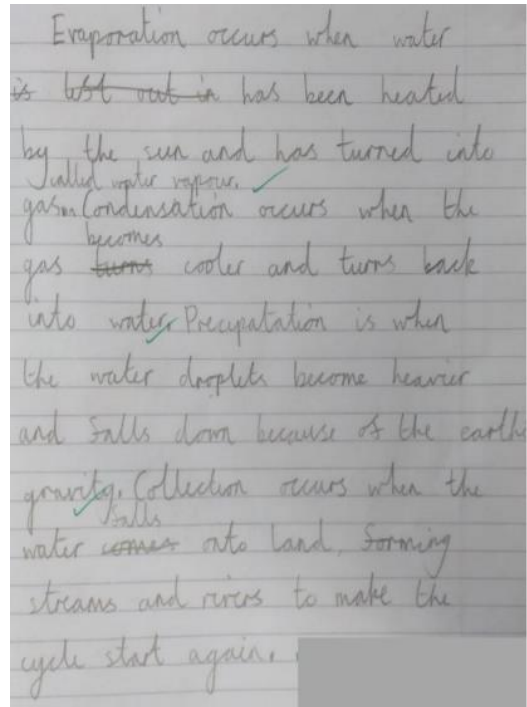 Evaporation occurs when water
is lost out in has been heated
by the sun and has turned into
called water vapour.
gas. Condensation occurs when the
becomes
gas turns cooler and turns back
into water. Precupatation is when
the water droplets become heavier
and falls down because of the earths
gravity. Collection occurs when the
falls
water comes onto land, forming
streams and rivers to make the
cycle start again.